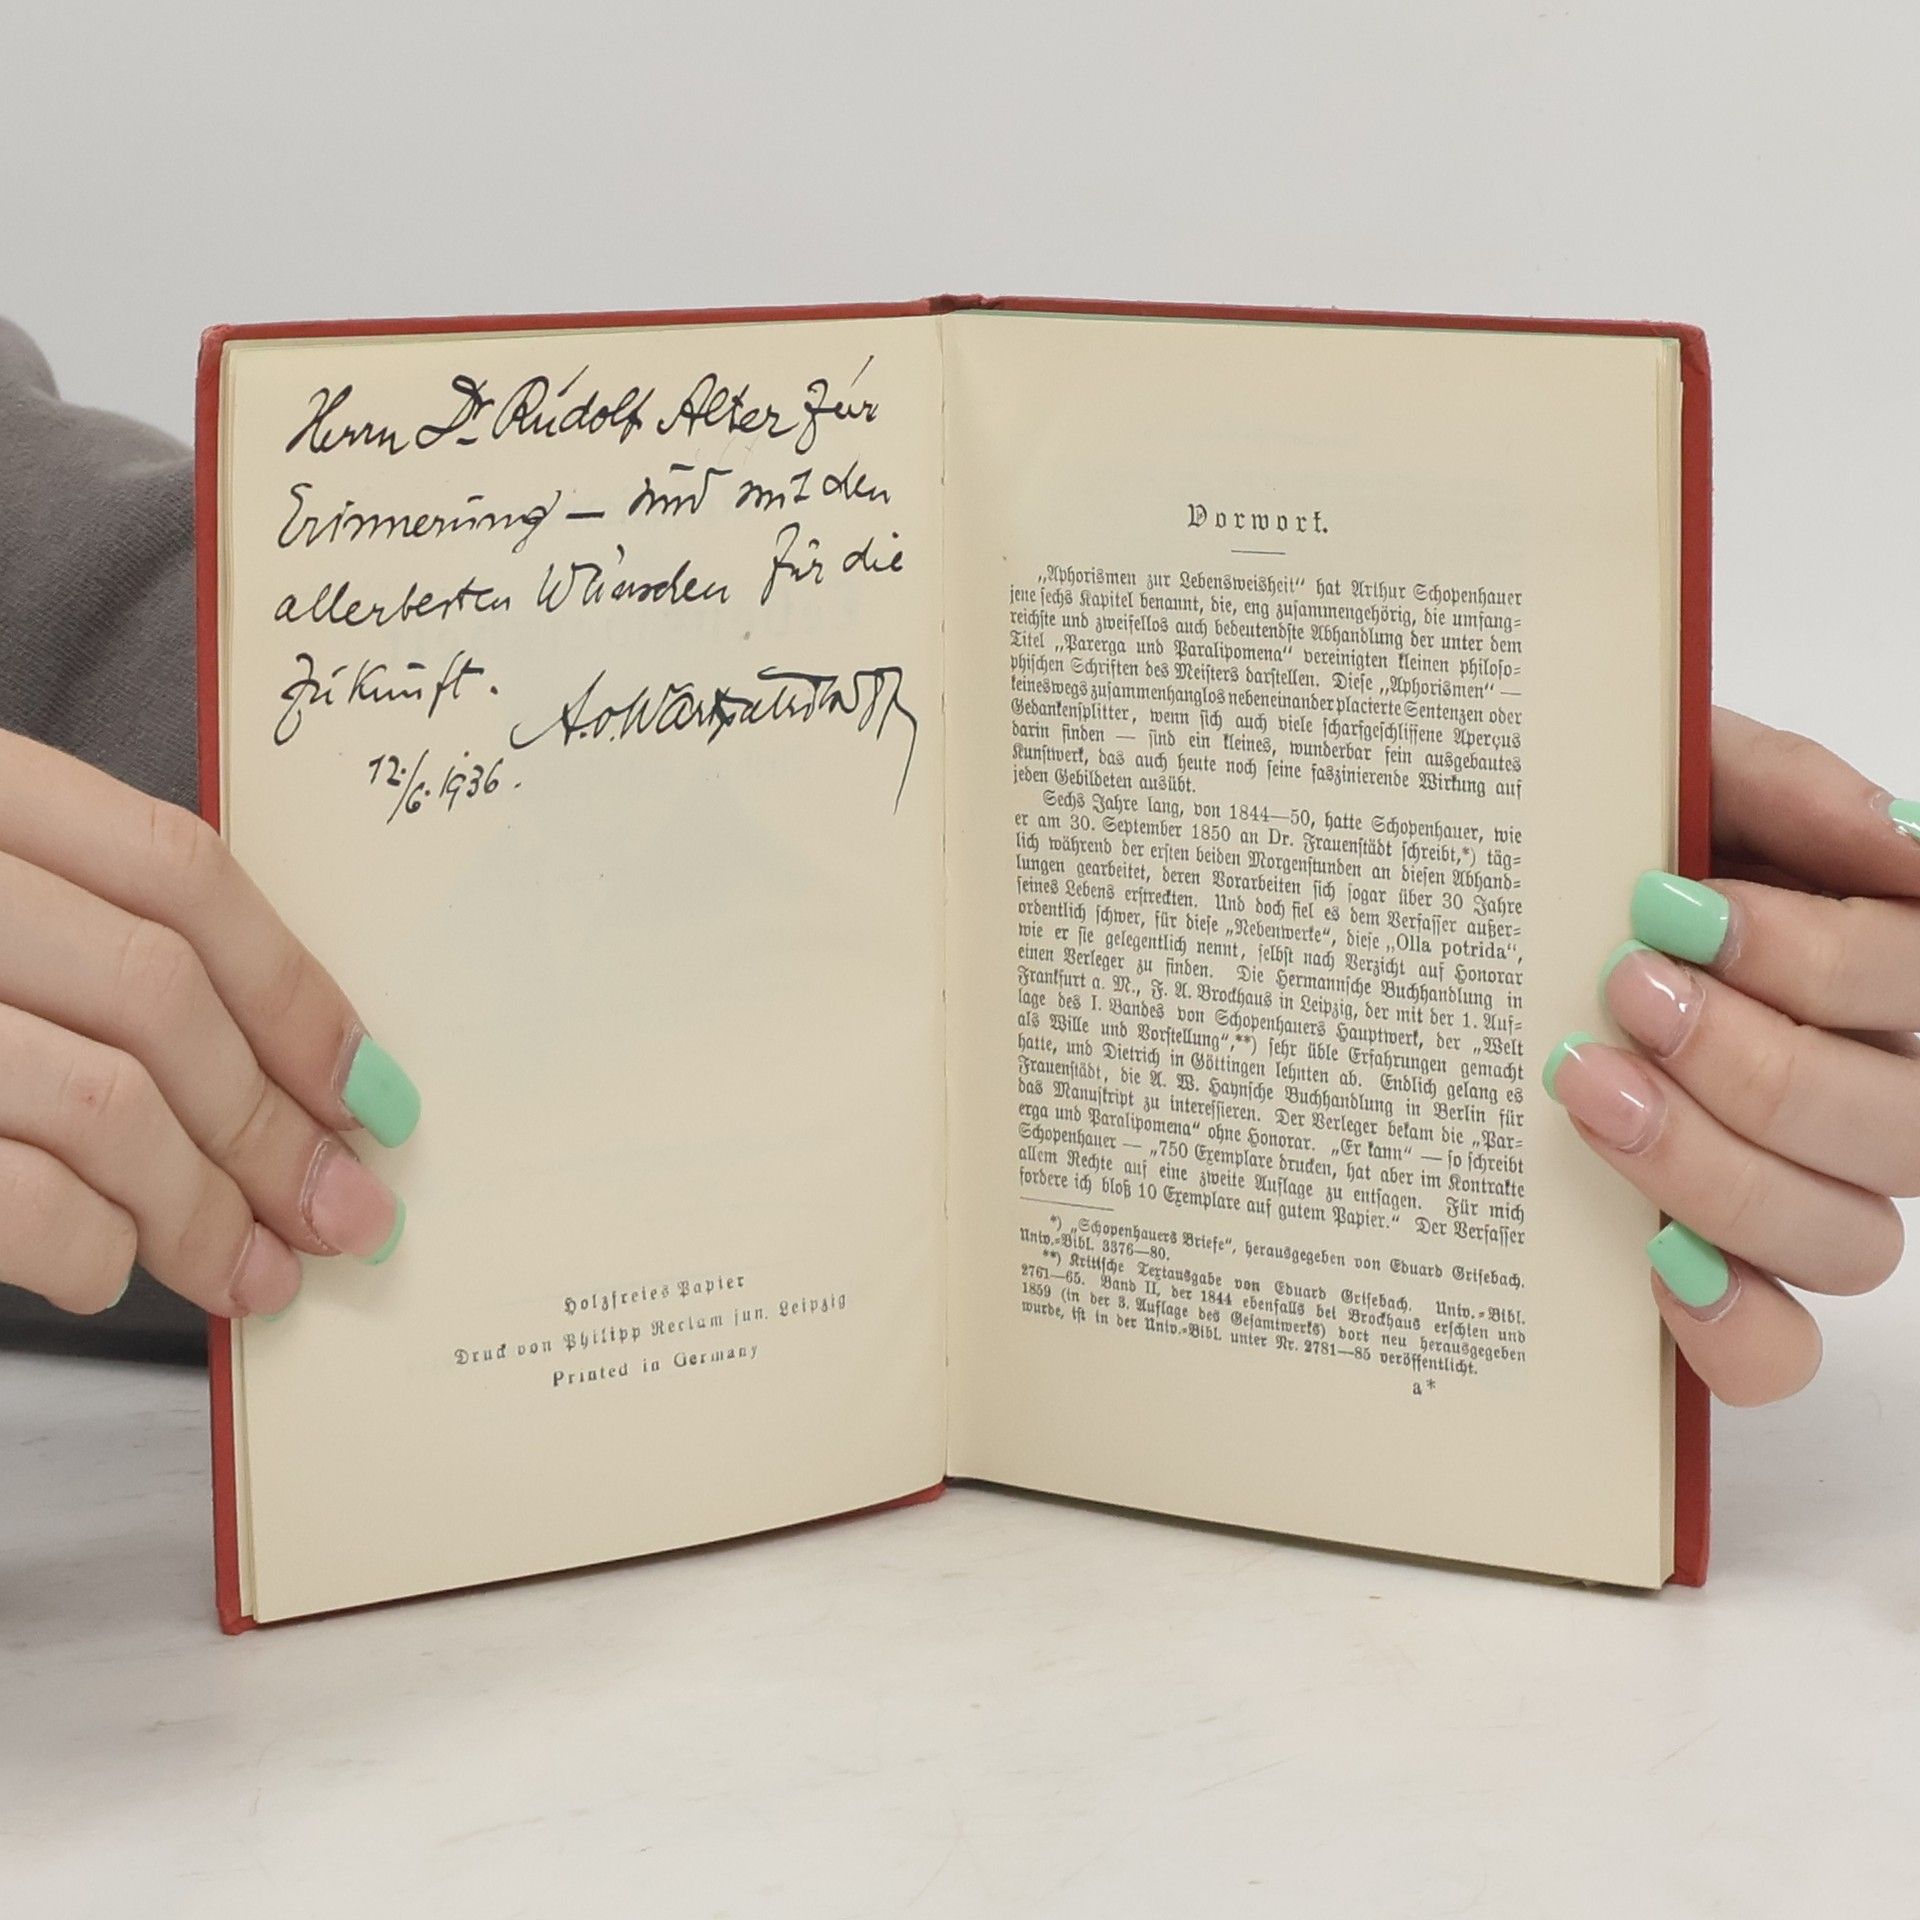 Herrn Dr Rudolf Alter zur
Erinnerung – und mit den
allerbesten Wünschen für die
Zukunft.
12./6. 1936.
Holzfreies Papier
Druck von Philipp Reclam jun. Leipzig
Printed in Germany
Vorwort.
„Aphorismen zur Lebensweisheit“ hat Arthur Schopenhauer
jene sechs Kapitel benannt, die, eng zusammengehörig, die umfang=
reichste und zweifellos auch bedeutendste Abhandlung der unter dem
Titel „Parerga und Paralipomena“ vereinigten kleinen philoso=
phischen Schriften des Meisters darstellen. Diese „Aphorismen“ —
keineswegs zusammenhanglos nebeneinander placierte Sentenzen oder
Gedankensplitter, wenn sich auch viele scharfgeschliffene Aperçus
darin finden — sind ein kleines, wunderbar fein ausgebautes
Kunstwerk, das auch heute noch seine faszinierende Wirkung auf
jeden Gebildeten ausübt.
Sechs Jahre lang, von 1844—50, hatte Schopenhauer, wie
er am 30. September 1850 an Dr. Frauenstädt schreibt,*) täg=
lich während der ersten beiden Morgenstunden an diesen Abhand=
lungen gearbeitet, deren Vorarbeiten sich sogar über 30 Jahre
seines Lebens erstreckten. Und doch fiel es dem Verfasser außer=
ordentlich schwer, für diese „Nebenwerke“, diese „Olla potrida“,
wie er sie gelegentlich nennt, selbst nach Verzicht auf Honorar
einen Verleger zu finden. Die Hermannsche Buchhandlung in
Frankfurt a. M., F. A. Brockhaus in Leipzig, der mit der 1. Auf=
lage des I. Bandes von Schopenhauers Hauptwerk, der „Welt
als Wille und Vorstellung“,**) sehr üble Erfahrungen gemacht
hatte, und Dietrich in Göttingen lehnten ab. Endlich gelang es
Frauenstädt, die A. W. Haynsche Buchhandlung in Berlin für
das Manuskript zu interessieren. Der Verleger bekam die „Par=
erga und Paralipomena“ ohne Honorar. „Er kann“ — so schreibt
Schopenhauer — „750 Exemplare drucken, hat aber im Kontrakte
allem Rechte auf eine zweite Auflage zu entsagen. Für mich
fordere ich bloß 10 Exemplare auf gutem Papier.“ Der Verfasser
*) „Schopenhauers Briefe“, herausgegeben von Eduard Grisebach.
Univ.=Bibl. 3376—80.
**) Kritische Textausgabe von Eduard Grisebach. Univ.=Bibl.
2761—65. Band II, der 1844 ebenfalls bei Brockhaus erschien und
1859 (in der 3. Auflage des Gesamtwerks) dort neu herausgegeben
wurde, ist in der Univ.=Bibl. unter Nr. 2781—85 veröffentlicht.
a*